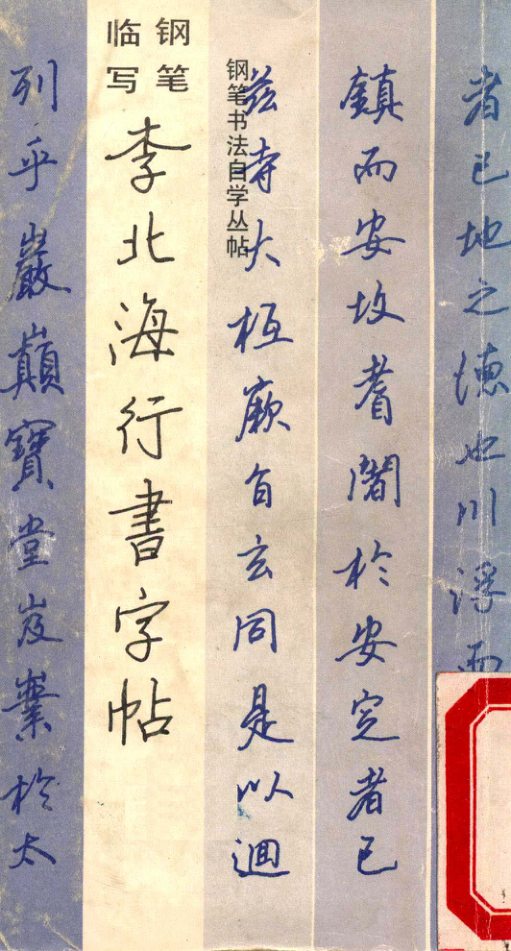 者已地之德也川浮而
鎮而安故耆闍於安定者已
兹寺大抵厥旨玄同是以迴
钢笔书法自学丛帖
钢笔
临写
李北海行書字帖
列乎巖巔寶堂岌嶪於太